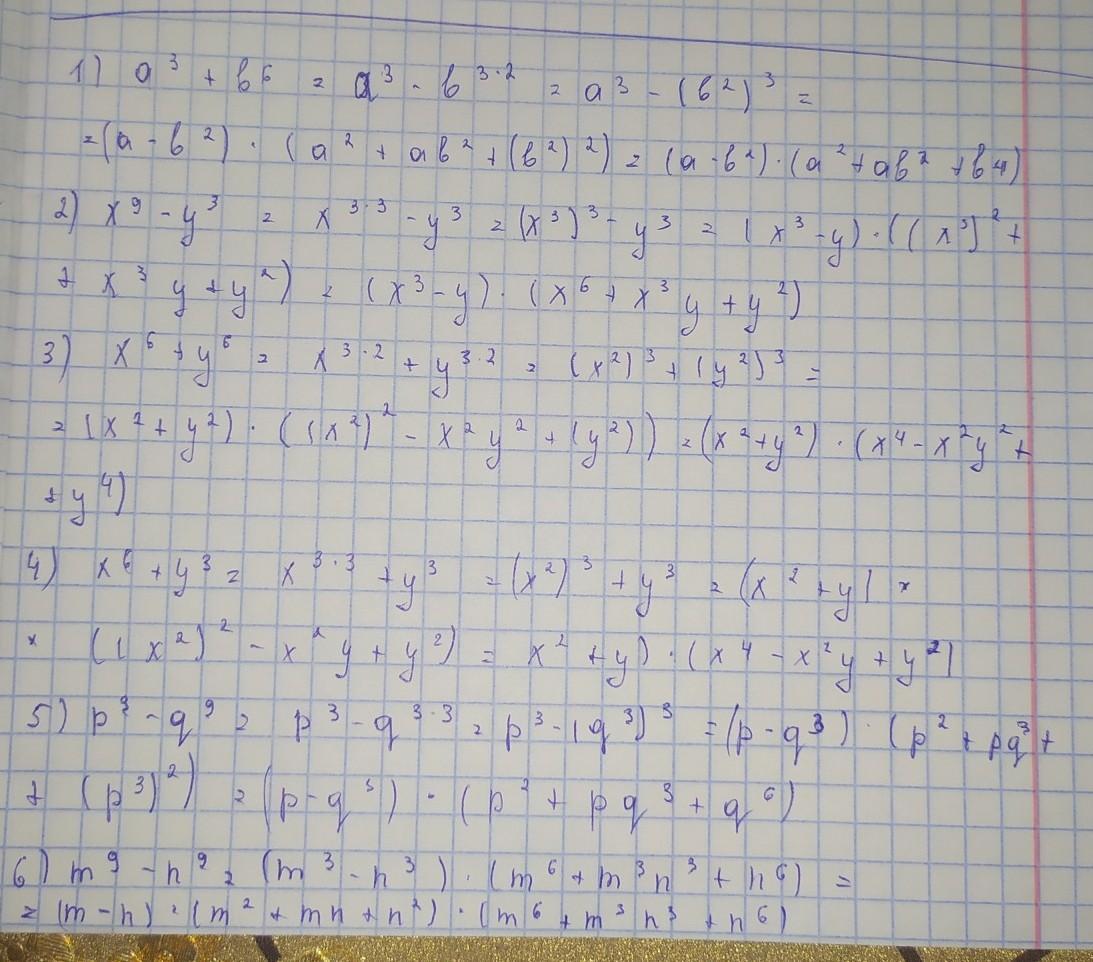 1) a³ + b⁶ = a³ - b³·² = a³ - (b²)³ =
= (a - b²) · (a² + ab² + (b²)²) = (a - b²) · (a² + ab² + b4)
2) x⁹ - y³ = x³·³ - y³ = (x³)³ - y³ = (x³ - y) · ((x³)² +
+ x³y + y²) = (x³ - y) · (x⁶ + x³y + y²)
3) x⁶ + y⁶ = x³·² + y³·² = (x²)³ + (y²)³ =
= (x² + y²) · ((x²)² - x²y² + (y²)) = (x² + y²) · (x⁴ - x²y² +
+ y⁴)
4) x⁶ + y³ = x³·³ + y³ = (x²)³ + y³ = (x² + y) ×
× ((x²)² - x²y + y²) = x² + y) · (x⁴ - x²y + y²)
5) p³ - q⁹ = p³ - q³·³ = p³ - (q³)³ = (p - q³) · (p² + pq³ +
+ (p³)²) = (p - q³) · (p² + pq³ + q⁶)
6) m⁹ - n⁹ = (m³ - n³) · (m⁶ + m³n³ + n⁶) =
= (m - n) · (m² + mn + n²) · (m⁶ + m³n³ + n⁶)